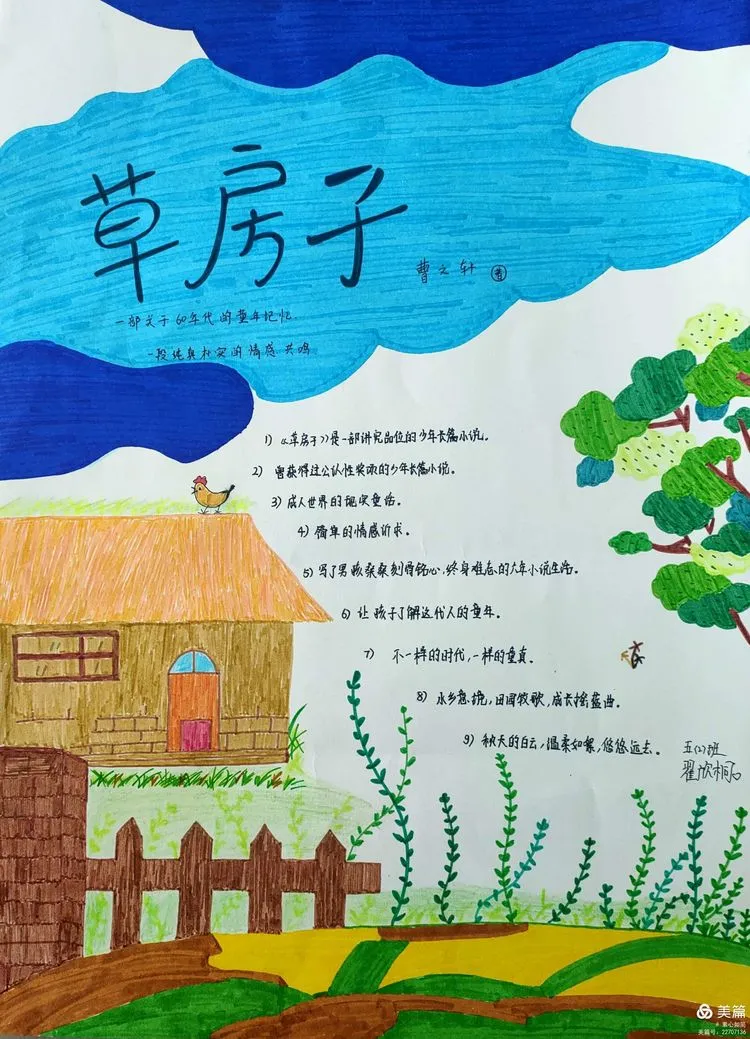 草房子
曹文轩 著
一部关于60年代的童年记忆.
一段纯真朴实的情感共鸣
1）《草房子》是一部讲究品位的少年长篇小说。
2）曾获得过公认性奖项的少年长篇小说。
3）成人世界的现实童话。
4）简单的情感诉求。
5）写了男孩桑桑刻骨铭心,终身难忘的六年小说生活。
6）让孩子了解这代人的童年。
7）不一样的时代,一样的童真。
8）水乡意境,田园牧歌,成长摇蓝曲。
9）秋天的白云,温柔如絮,悠悠远去。
五(2)班
翟欣桐
美篇
素心如简
美篇号：22707136